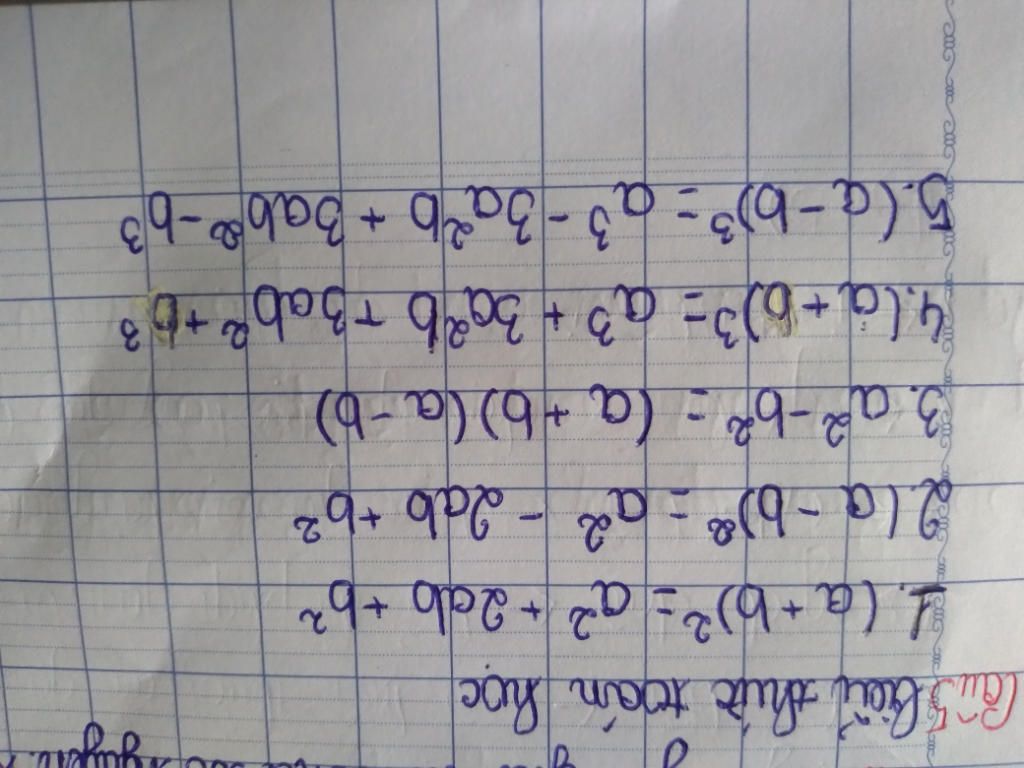 Câu 5 Biểu thức toán học
1. (a + b)² = a² + 2ab + b²
2. (a - b)² = a² - 2ab + b²
3. a² - b² = (a + b)(a - b)
4. (a + b)³ = a³ + 3a²b + 3ab² + b³
5. (a - b)³ = a³ - 3a²b + 3ab² - b³